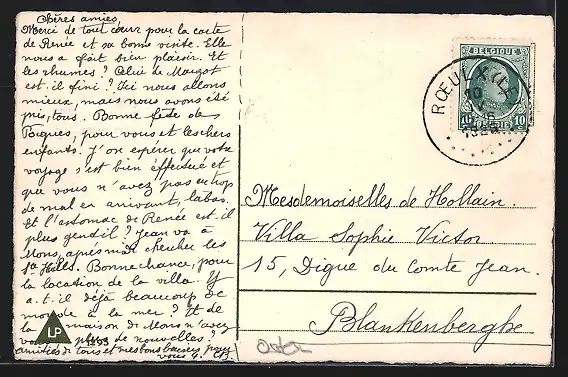 Chères amies,
Merci de tout cœur pour la carte
de Renée et sa bonne visite. Elle
nous a fait bien plaisir. Et
les rhumes? Celui de Margot
est-il fini? Ici nous allons
mieux, mais nous avons été
pris, tous. Bonne fête de
Pâques, pour vous et les chers
enfants. J'ose espérer que votre
voyage s'est bien effectué et
que vous n'avez pas eu trop
de mal en arrivant, là bas.
Et l'estomac de Renée est-il
plus gentil? Jean va à
Mons, après-midi chercher les
Bonne chance, pour
la location de la villa. Y
a-t-il déjà beaucoup de
monde à la mer? Et de
la maison de Mons n'avez
vous plus de nouvelles?
amitiés de tous et mes bons baisers pour
vous
LP
BELGIQUE
10 10
RŒULX (LE
Mesdemoiselles de Hollain.
Villa Sophie Victor.
15, Digue du Comte Jean.
Blankenberghe